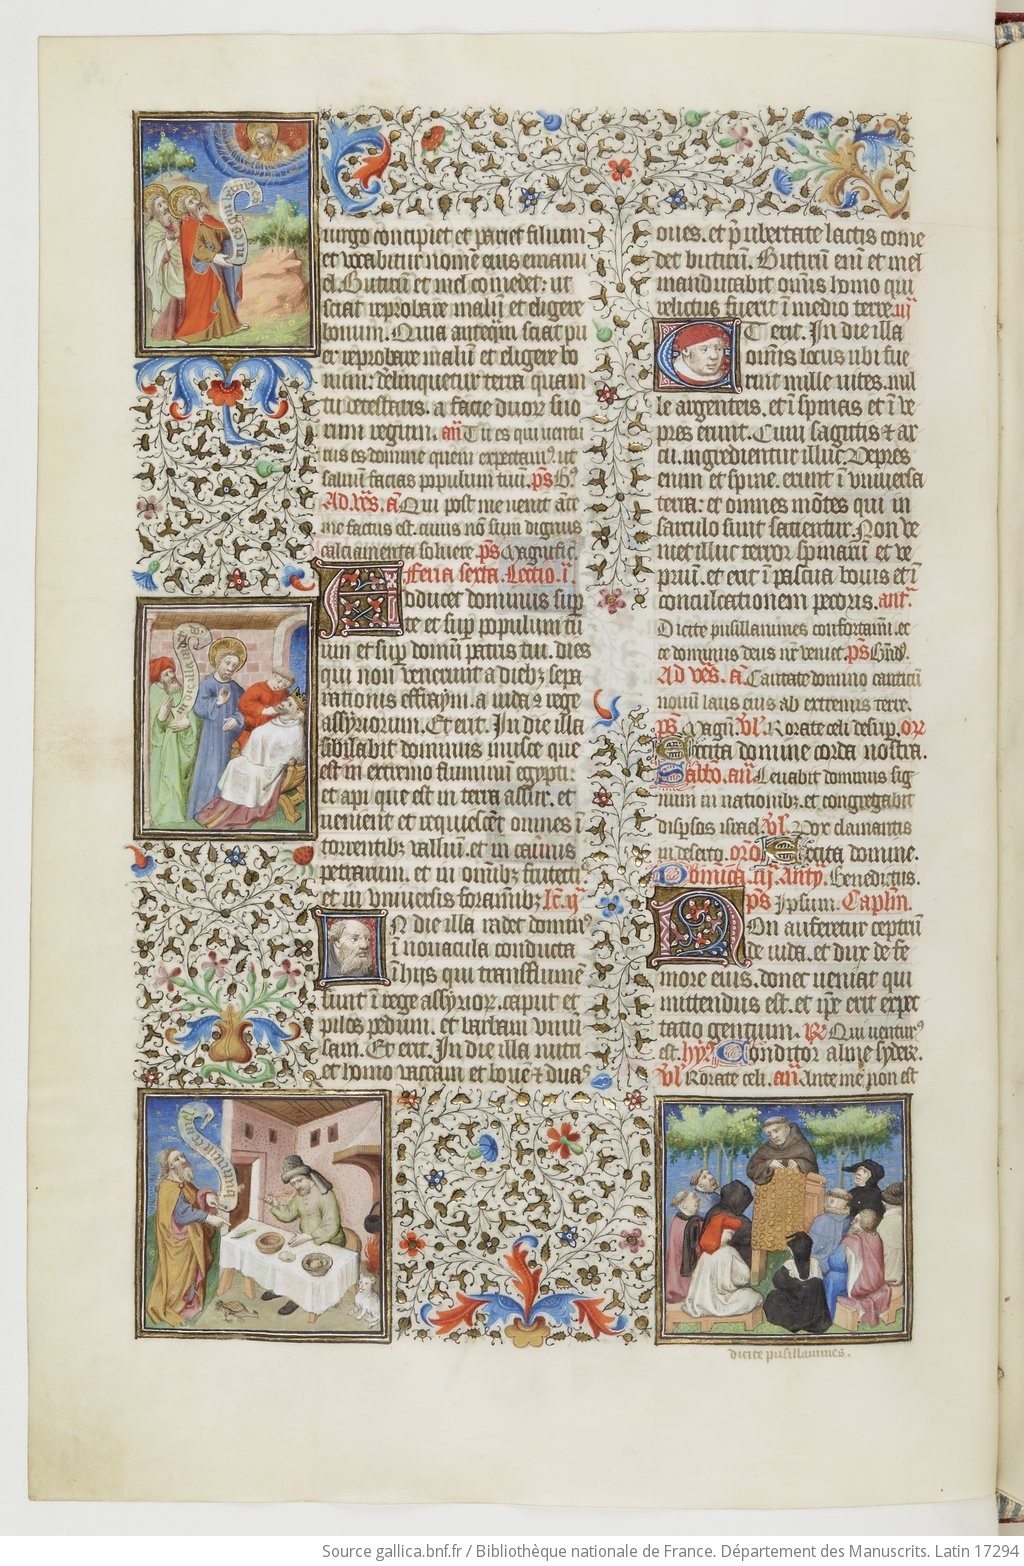 uirgo concipiet et pariet filium
et vocabitur nomē eius emanu
el. Butirū et mel comedet: ut
sciat reprobare malū et eligere
bonum. Quia anteq̄m sciat pu
er reprobare malū et eligere bo
num: delinquetur terra quam
tu detestaris. a facie duorꝝ suo
rum regum. añ Tu es qui ventu
rus es domine quem expectamꝰ ut
saluū facias populum tuū. ps̄
Ad. vēs. ā Qui post me venit ante
me factus est. cuius nō sum dignus
calciamenta soluere. ps̄ Magnific̄.
Feria sexta. Lectio. i.
Adducet dominus sup
te et sup populum tu
um et sup domū patris tui. dies
qui non venerunt a diebꝫ sepa
rationis effraym. a iuda cū rege
assyriorum. Et erit. In die illa
sibilabit dominus musce que
est in extremo fluminū egypti:
et api que est in terra assur. et
uenient et requiescēt omnes ī
torrentibꝫ valliū. et in cauernis
petrarum. et in omībꝫ frutecti
et in vniuersis foraminibꝫ Lc̄. ij
In die illa radet dominꝰ
ī nouacula conducta
ī hijs qui trans flumē
sunt ī rege assyriorꝝ. caput et
pilos pedum. et barbam vniu
sam. Et erit. In die illa nutri
et homo vaccam et boue ⁊ duas
oues. et p̄ vbertate lactis come
det butirū. Butirū enī et mel
manducabit omīs homo qui
relictus fuerit ī medio terre. iij
Et erit. In die illa
omīs locus vbi fue
rint mille vites. mil
le argenteis. et ī spinas et ī ve
pres erunt. Cum sagittis ⁊ ar
cu. ingredientur illuc. Vepres
enim et spine. erunt ī vniuersa
terra: et omnes mōtes qui in
sarculo sunt sarrientur. Non ve
niet illuc terror spinarū et ve
prium. et erit ī pascua bouis et ī
conculcationem pecoris. ant̄.
Dicite pusillanimes confortamī. ec
ce dominus deus nr̄ veniet. ps̄
Ad vēs. ā Cantate domino canticū
nouū laus eius ab extremis terre.
ps̄ Magn̄. vl̄. Rorate celi desup. or̄
Excita domine corda nostra.
Sabb̄o. añ Leuabit dominus sig
num in nationibꝫ. et congregabit
disp̄sos israel. vl̄. Vox clamantis
in deserto. or̄o Excita domine.
Dominica iij. Anty. Benedictus.
ps̄ Ipsum. Caplm̄.
Non auferetur ceptrū
de iuda. et dux de fe
more eius. donec ueniat qui
mittendus est. et ip̄e erit expec
tatio gentium. ℟ Qui venturꝰ
est. hyꝰ. Conditor alme syderꝝ.
vl̄ Rorate celi. añ Ante me non est
dicite pusillanimes.
Source gallica.bnf.fr / Bibliothèque nationale de France. Département des Manuscrits. Latin 17294